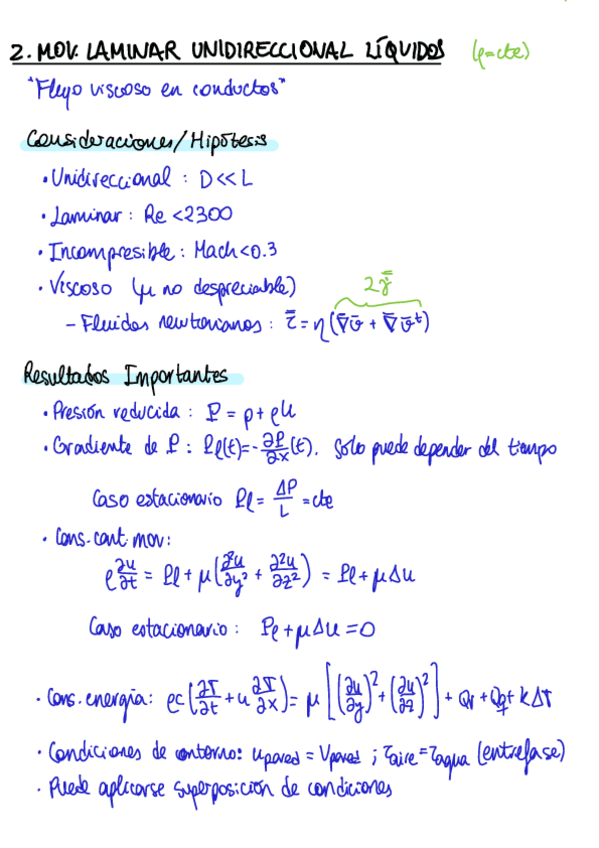 2. MOV. LAMINAR UNIDIRECCIONAL LÍQUIDOS (ρ=cte)
"Flujo viscoso en conductos"
Consideraciones/Hipótesis
• Unidireccional : D<<L
• Laminar : Re <2300
• Incompresible : Mach<0.3
• Viscoso (μ no despreciable) 2γ̿
– Fluidos newtonianos : τ̿ = η (∇̄v̄ + ∇̄v̄ᵗ)
Resultados Importantes
• Presión reducida : P = p + ρU
• Gradiente de P : Pl(t)=-∂P/∂x(t). Solo puede depender del tiempo
Caso estacionario Pl = ΔP/L = cte
• Cons. cant. mov:
ρ ∂u/∂t = Pl + μ(∂²u/∂y² + ∂²u/∂z²) = Pl + μΔu
Caso estacionario : Pl + μΔu = 0
• Cons. energía: ρc(∂T/∂t + u ∂T/∂x) = μ[(∂u/∂y)² + (∂u/∂z)²] + Qr + Qq + kΔT
• Condiciones de contorno: upared = Vpared ; τaire = τagua (entrefase)
• Puede aplicarse superposición de condiciones